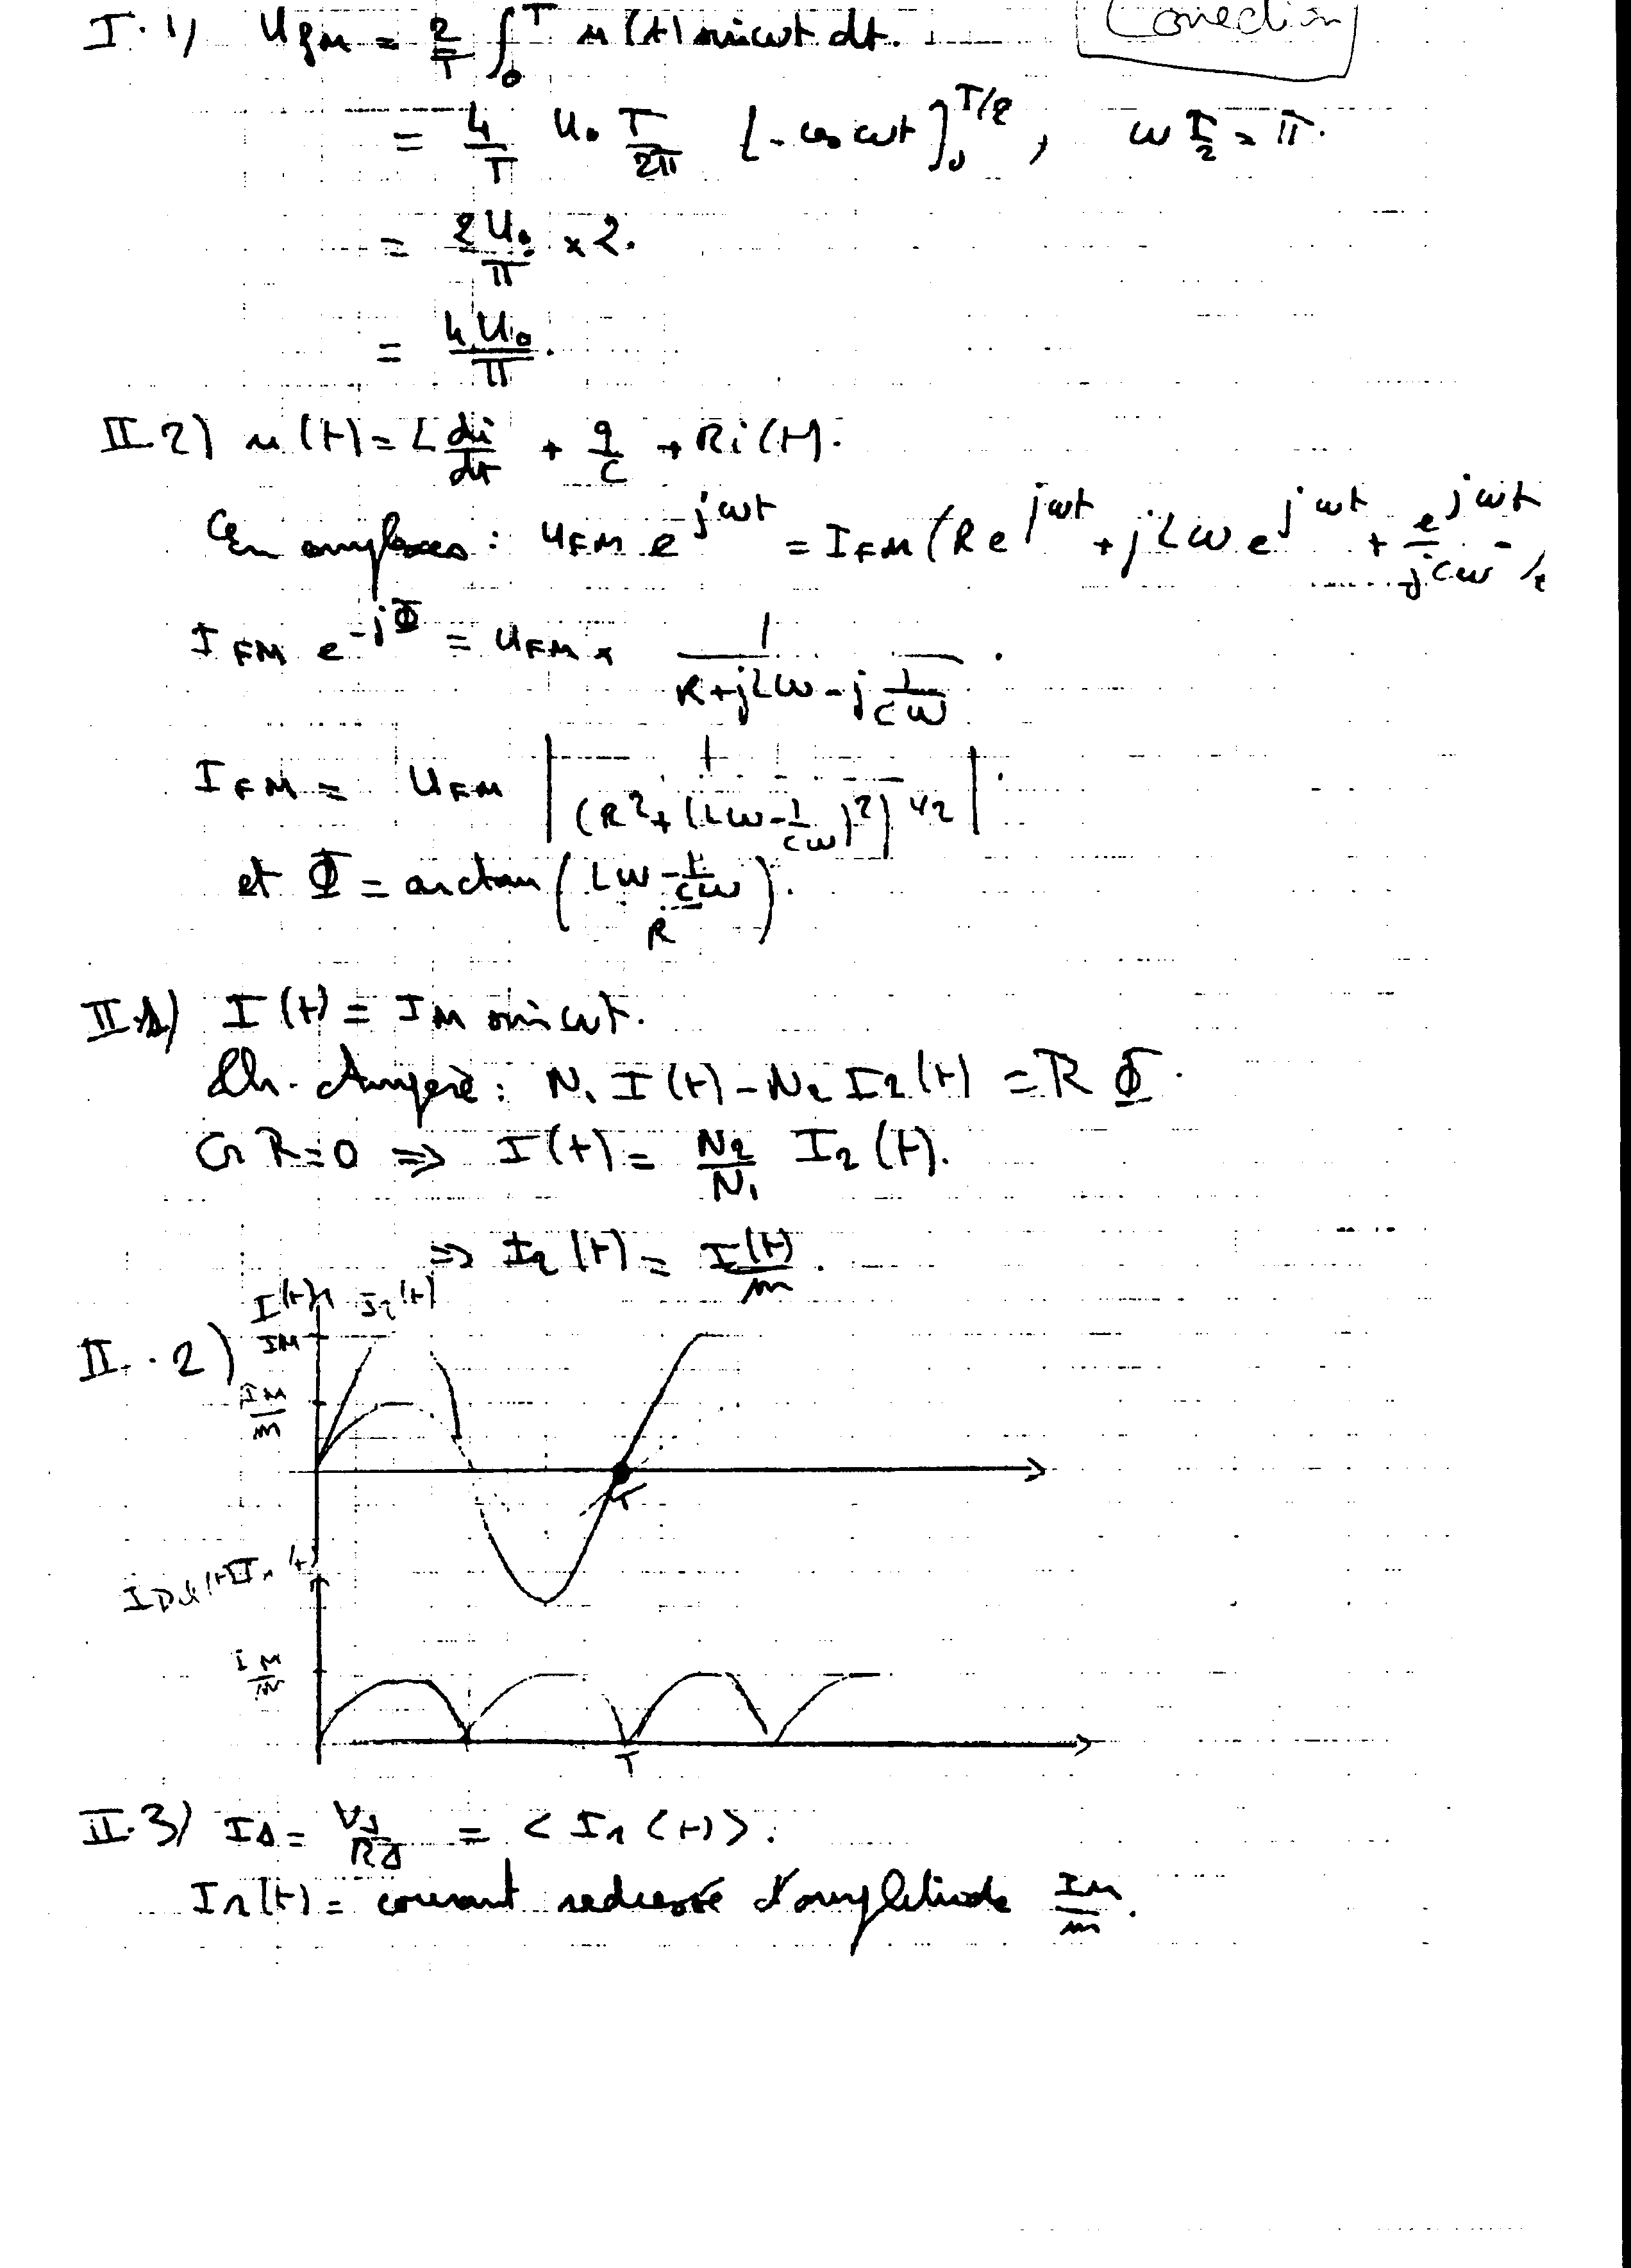 Correction
I.1) UfM = 2/T ∫₀ᵀ u(t) sin ωt dt.
= 4/T U₀ T/2π [-cos ωt]₀^{T/2}, ω T/2 = π.
= 2U₀/π × 2.
= 4U₀/π.
II.2) u(t) = L di/dt + q/C + Ri(t).
En complexes : UFM e^{jωt} = IFM (R e^{jωt} + jLω e^{jωt} + e^{jωt}/jCω
IFM e^{-jΦ} = UFM × 1/(R+jLω-j 1/Cω).
IFM = UFM |1/(R²+(Lω-1/Cω)²)^{1/2}|.
et Φ = arctan((Lω-1/Cω)/R).
II.1) I(t) = IM sin ωt.
Th. Ampère : N₁ I(t) - N₂ I₂(t) = R Φ.
R=0 ⇒ I(t) = N₂/N₁ I₂(t).
⇒ I₂(t) = I(t)/m.
I(t), I₂(t)
II.2)
IM
IM/m
T
IM/m
T
II.3) IΔ = VΔ/RΔ = < I₁(t) >.
I₁(t) = courant redressé d'amplitude IM/m.